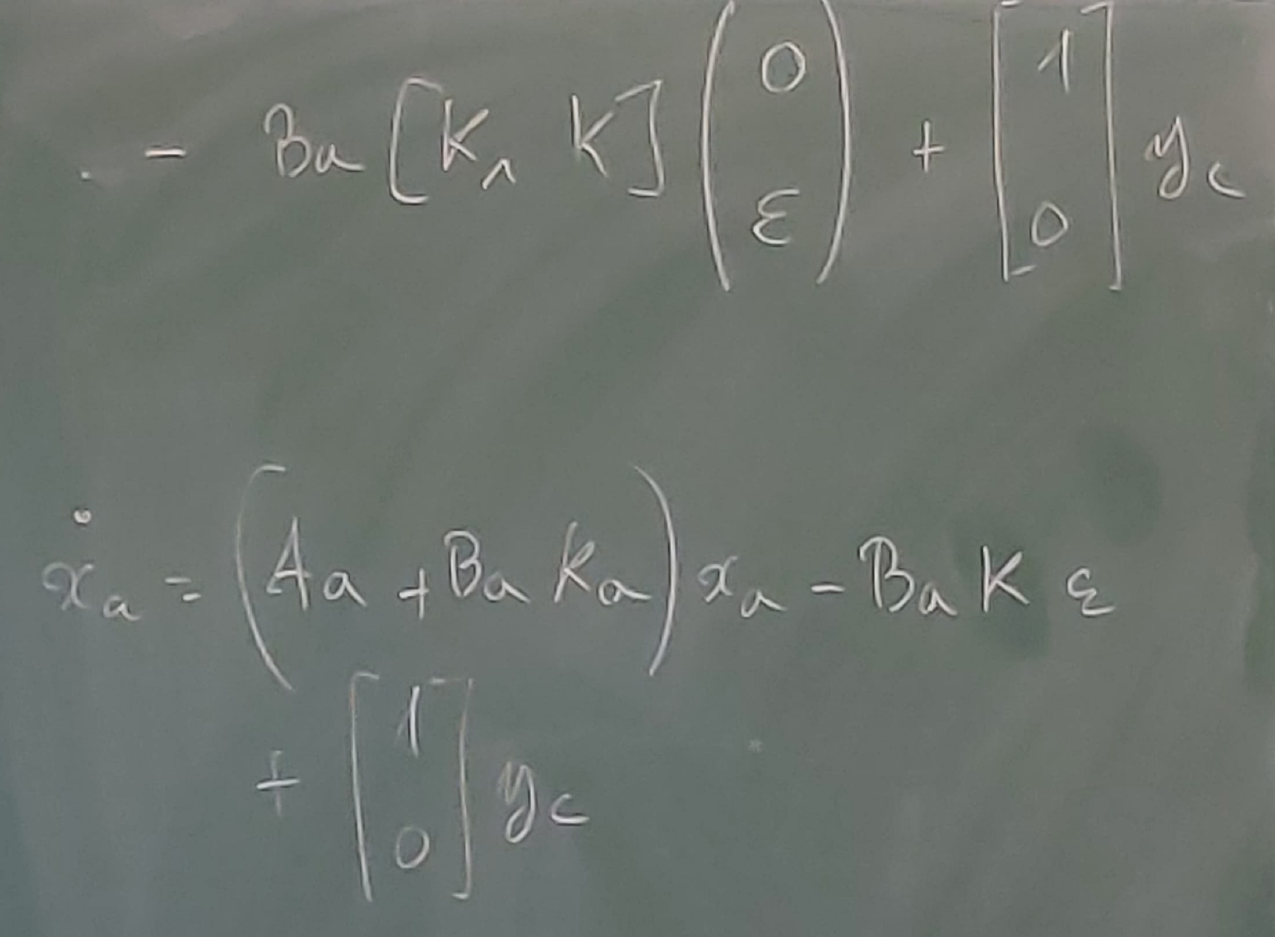 - Ba [K₁ K] (0 ε) + [1 0] y_c
ẋ_a = (A_a + B_a K_a) x_a - B_a K ε
+ [1 0] y_c